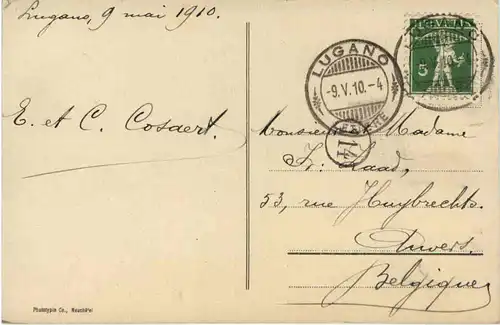 Lugano, 9 mai 1910.
E. et C. Cosaert.
LUGANO
-9.V.10.-4
LETTERE
LUGANO
5
14
11
Monsieur & Madame
Fr. Saad,
53, rue Huybrechts.
Anvers.
Belgique
Phototypie Co., Neuchâtel